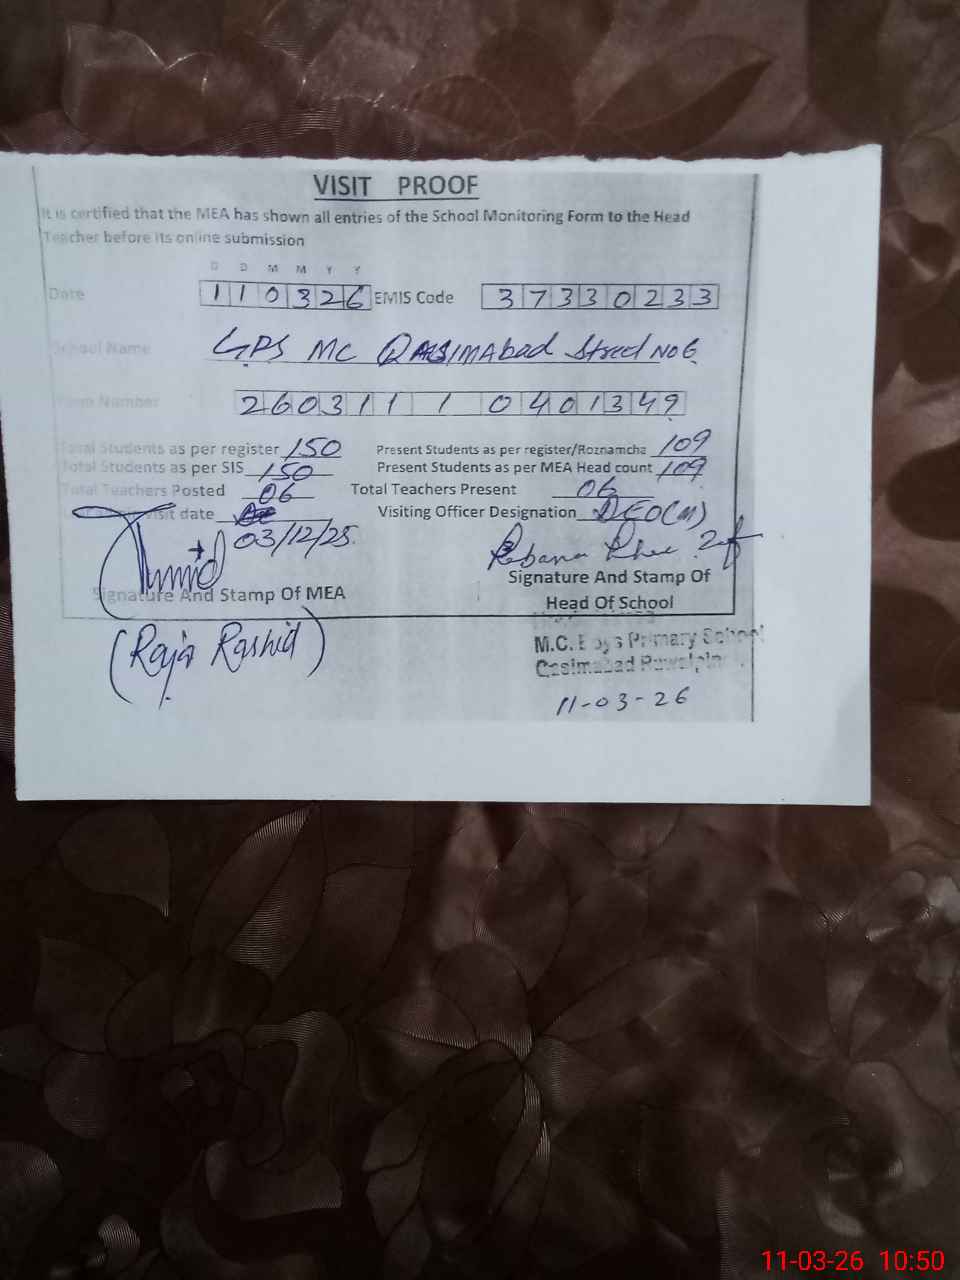 VISIT PROOF
It is certified that the MEA has shown all entries of the School Monitoring Form to the Head
Teacher before its online submission
D D M M Y Y
Date 110326 EMIS Code 37330233
School Name GPS MC QASIMAbad Street No 6
Form Number 2603111 0401349
Total Students as per register 150 Present Students as per register/Roznamcha 109
Total Students as per SIS 150 Present Students as per MEA Head count 109
Total Teachers Posted 06 Total Teachers Present 06
visit date 03/12/25 Visiting Officer Designation DEO(M)
Signature And Stamp Of MEA Signature And Stamp Of
Head Of School
(Raja Rashid)
M.C. Boys Primary School
Qasimabad Rawalpin
11-03-26
11-03-26 10:50